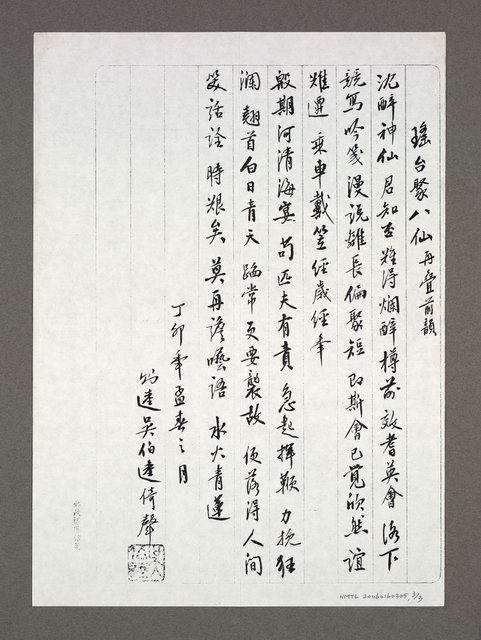 瑤台聚八仙 再疊前韻
沉醉神仙 君知否 難得爛醉樽前 效耆英會 洛下
競寫吟箋 漫說離長偏聚短 即斯會已覺欣然 誼
難遷 乘車戴笠 經歲經年
殷期河清海宴 苟匹夫有責 急起揮鞭 力挽狂
瀾 翹首白日青天 蹈常更要襲故 便落得人間
笑話詮 時艱矣 莫再譫囈語 水火青蓮
丁卯年孟春之月
吳伯逵倚聲
NMTL 20060160305, 3/3